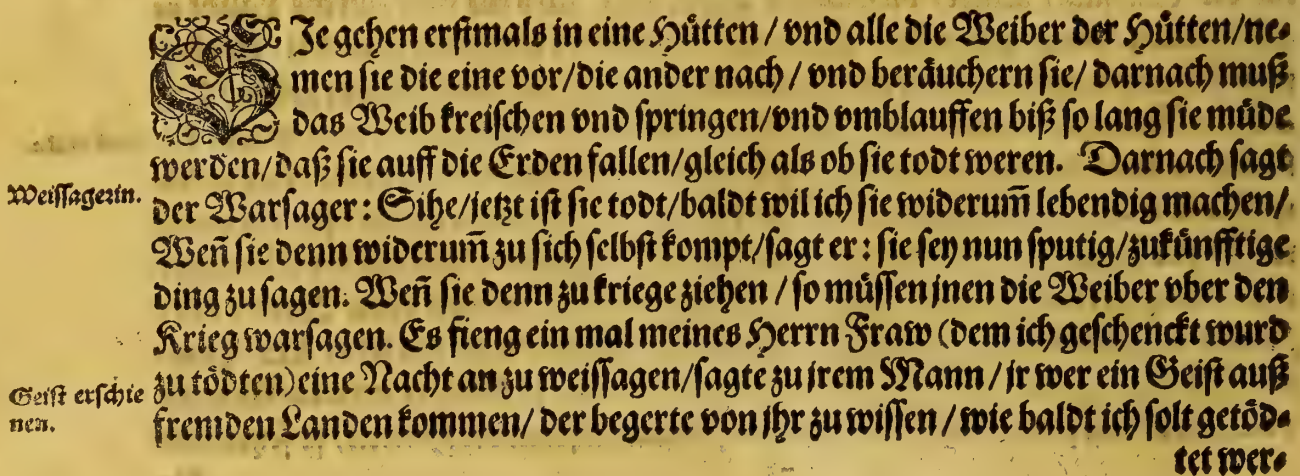 SJe gehen erstmals in eine Hütten / vnd alle die Weiber der Hütten/ne-
men sie die eine vor/die ander nach / vnd beräuchern sie/ darnach muß
das Weib kreischen vnd springen/vnd vmblauffen biß so lang sie müde
werden/daß sie auff die Erden fallen/gleich als ob sie todt weren. Darnach sagt
Weissagerin.
der Warsager: Sihe/jetzt ist sie todt/baldt wil ich sie widerum̃ lebendig machen/
Weñ sie denn widerum̃ zu sich selbst kompt/sagt er: sie sey nun sputig/zukünfftige
ding zu sagen. Weñ sie denn zu kriege ziehen / so müssen jnen die Weiber vber den
Krieg warsagen. Es fieng ein mal meines Herrn Fraw (dem ich geschenckt wurd
Geist erschie
nen.
zu tödten) eine Nacht an zu weissagen/sagte zu jrem Mann / jr wer ein Geist auß
fremden Landen kommen/ der begerte von jhr zu wissen / wie baldt ich solt getöd-
tet wer-